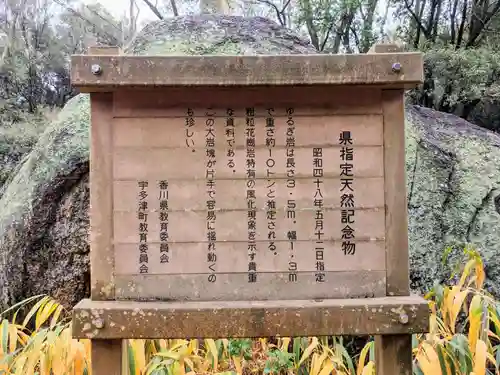 県指定天然記念物
昭和四十八年五月十二日指定
ゆるぎ岩は長さ３．５ｍ　幅１．３ｍ
で重さ約１０トンと推定される。
粗粒花崗岩特有の風化現象を示す貴重
な資料である。
この大岩塊が片手で容易に揺れ動くの
も珍しい。
香川県教育委員会
宇多津町教育委員会